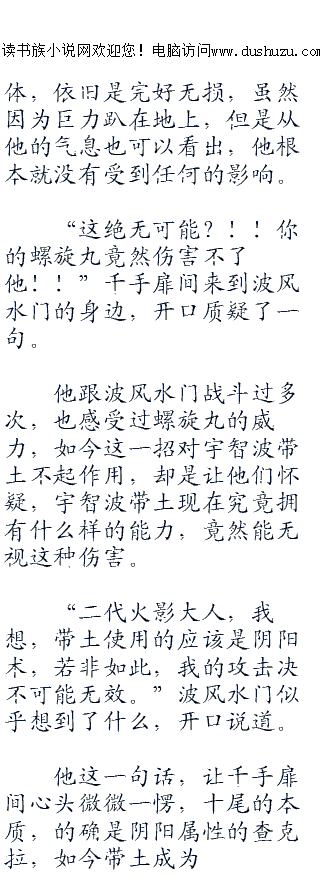 读书族小说网欢迎您！电脑访问www.dushuzu.com
体，依旧是完好无损，虽然
因为巨力趴在地上，但是从
他的气息也可以看出，他根
本就没有受到任何的影响。
“这绝无可能？！！你
的螺旋丸竟然伤害不了
他！！”千手扉间来到波风
水门的身边，开口质疑了一
句。
他跟波风水门战斗过多
次，也感受过螺旋丸的威
力，如今这一招对宇智波带
土不起作用，却是让他们怀
疑，宇智波带土现在究竟拥
有什么样的能力，竟然能无
视这种伤害。
“二代火影大人，我
想，带土使用的应该是阴阳
术，若非如此，我的攻击决
不可能无效。”波风水门似
乎想到了什么，开口说道。
他这一句话，让千手扉
间心头微微一愣，十尾的本
质，的确是阴阳属性的查克
拉，如今带土成为